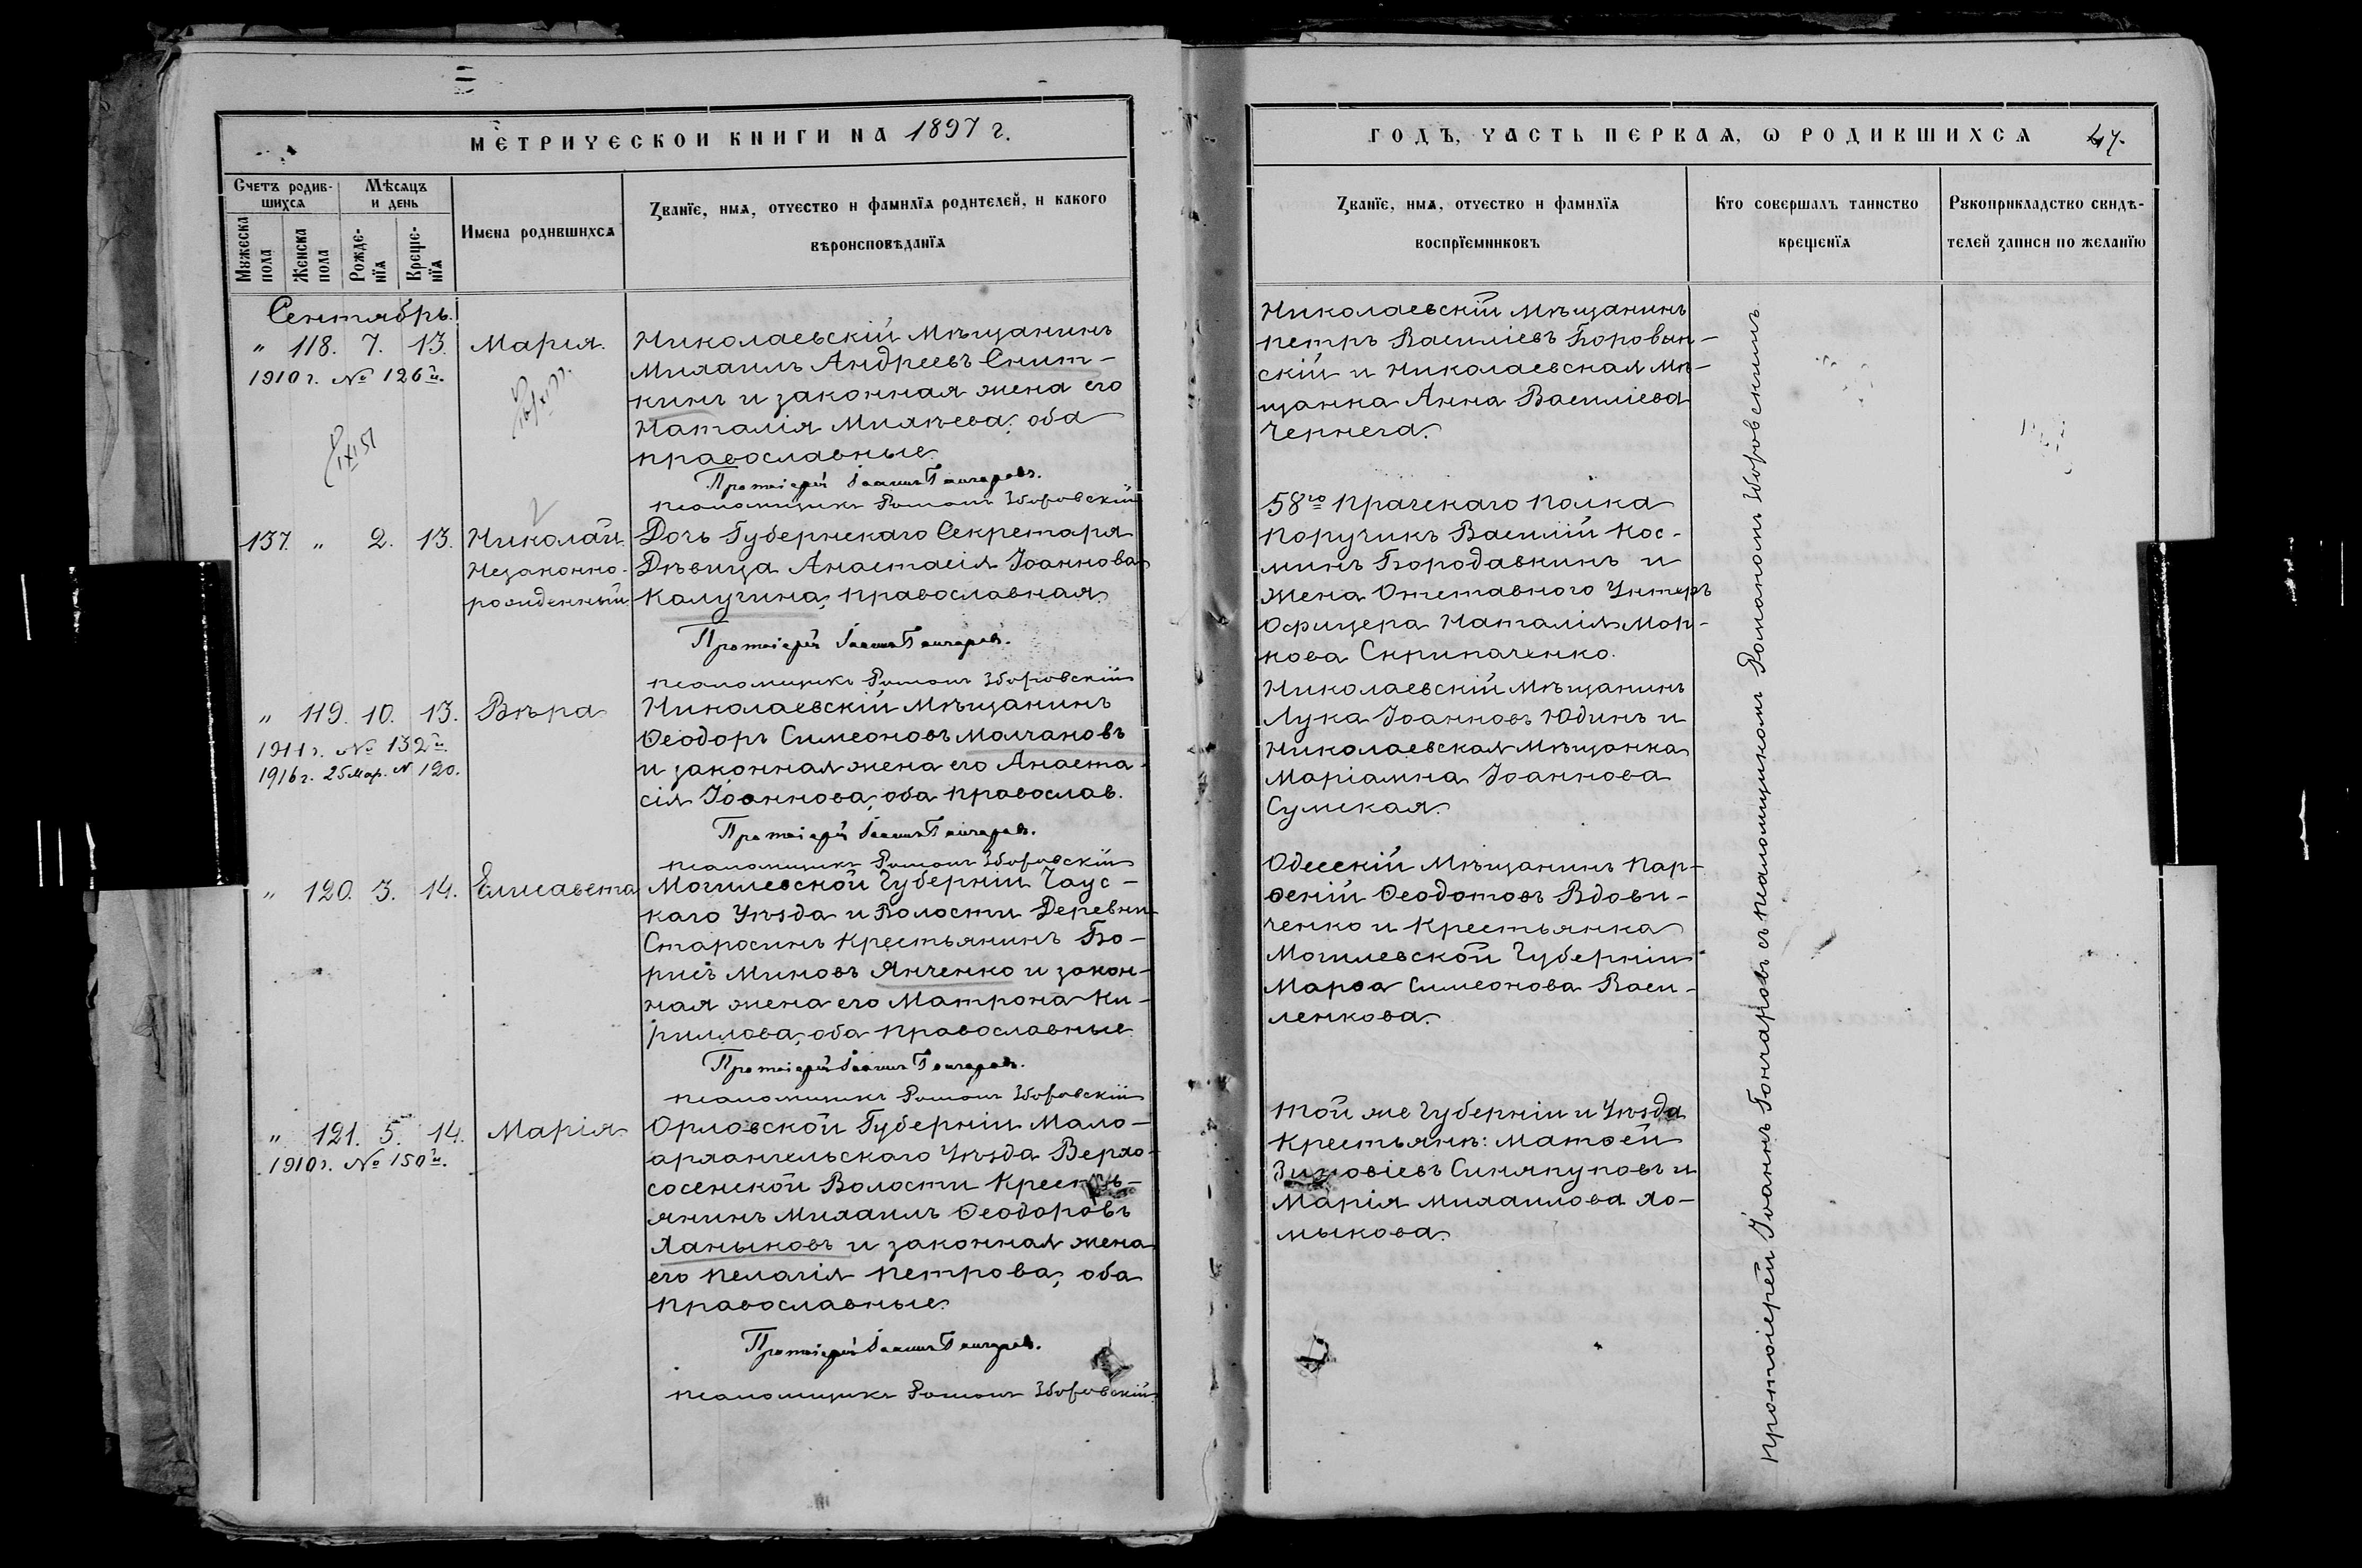 МЕТРИЧЕСКОЙ КНИГИ НА 1897 г.
Счетъ родив-
шихся
Мѣсяцъ
и день
Мужеска
пола
Женска
пола
Рожде-
нїя
Креще-
нїя
Имена родившихся
Званїе, имя, отчество и фамилїя родителей, и какого
вѣроисповѣданїя
Сентябрь.
" 118. 7. 13. Марія.
1910 г. № 126й.
Николаевскій Мѣщанинъ
Михаилъ Андреевъ Снит-
кинъ и законная жена его
Наталія Михѣева, оба
православные.
Протоіерей Іоаннъ Гончаровъ.
псаломщикъ Романъ Зборовскій
137. " 2. 13. Николай.
Незаконно-
рожденный
Дочь Губернскаго Секретаря
Дѣвица Анастасія Іоаннова
Калугина, православная.
Протоіерей Іоаннъ Гончаровъ.
псаломщикъ Романъ Зборовскій
" 119. 10. 13. Вѣра
1911 г. № 132й.
1916 г. 25 Мар. № 120.
Николаевскій Мѣщанинъ
Ѳеодоръ Симеоновъ Молчановъ
и законная жена его Анаста-
сія Іоаннова, оба православ.
Протоіерей Іоаннъ Гончаровъ.
псаломщикъ Романъ Зборовскій
" 120. 3. 14. Елисавета
Могилевской Губерніи Чаус-
каго Уѣзда и Волости Деревни
Старосинъ Крестьянинъ Бо-
рисъ Миновъ Янченко и закон-
ная жена его Матрона Ки-
риллова, оба православные
Протоіерей Іоаннъ Гончаровъ.
псаломщикъ Романъ Зборовскій
" 121. 5. 14. Марія
1910 г. № 150й.
Орловской Губерніи Мало-
архангельскаго Уѣзда Верхо-
сосенской Волости Кресть-
янинъ Михаилъ Ѳеодоровъ
Ханыковъ и законная жена
его Пелагія Петрова, оба
православные.
Протоіерей Іоаннъ Гончаровъ.
псаломщикъ Романъ Зборовскій
ГОДЪ, ЧАСТЬ ПЕРВАЯ, Ѡ РОДИВШИХСЯ 47.
Званїе, имя, отчество и фамилїя
воспрїемниковъ
Кто совершалъ таинство
крещенїя
Рукоприкладство свидѣ-
телей записи по желанїю
Николаевскій Мѣщанинъ
Петръ Василіевъ Боровин-
скій и Николаевская Мѣ-
щанка Анна Василіева
Чернега.
58го Прагскаго Полка
Поручикъ Василій Кос-
минъ Бородавкинъ и
Жена Отставного Унтеръ
Офицера Наталія Мар-
кова Скрипаченко.
Николаевскій Мѣщанинъ
Лука Іоанновъ Юдинъ и
Николаевская Мѣщанка
Маріамна Іоаннова
Сумская.
Одесскій Мѣщанинъ Пар-
ѳеній Ѳеодотовъ Вдови-
ченко и Крестьянка
Могилевской Губерніи
Марѳа Симеонова Васи-
ленкова.
Той же Губерніи и Уѣзда
Крестьяне: Матѳей
Зиновіевъ Синяпуповъ и
Марія Михаилова Хо-
мыкова.
Протоіерей Іоаннъ Гончаровъ съ псаломщикомъ Романомъ Зборовскимъ